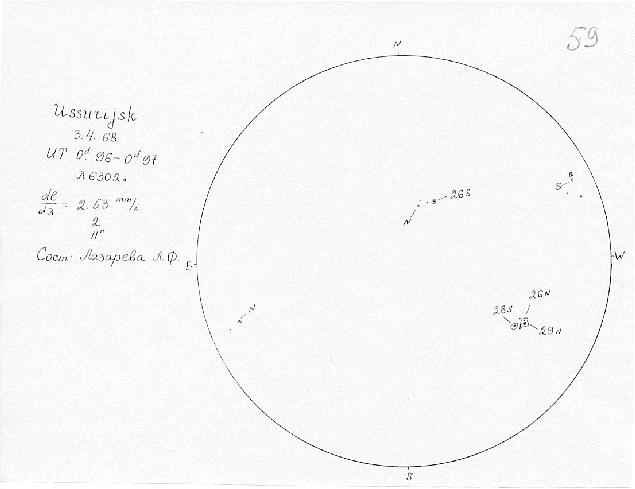 59
N
Ussurijsk
3.4.68
UT 0ᵈ.96-0ᵈ.97
λ6302
dl/dλ = 2.53 mm/Å
2
Сост. Лазарева А.Ф.
E
W
S
26S
N
S
8
N
26N
28S
29N